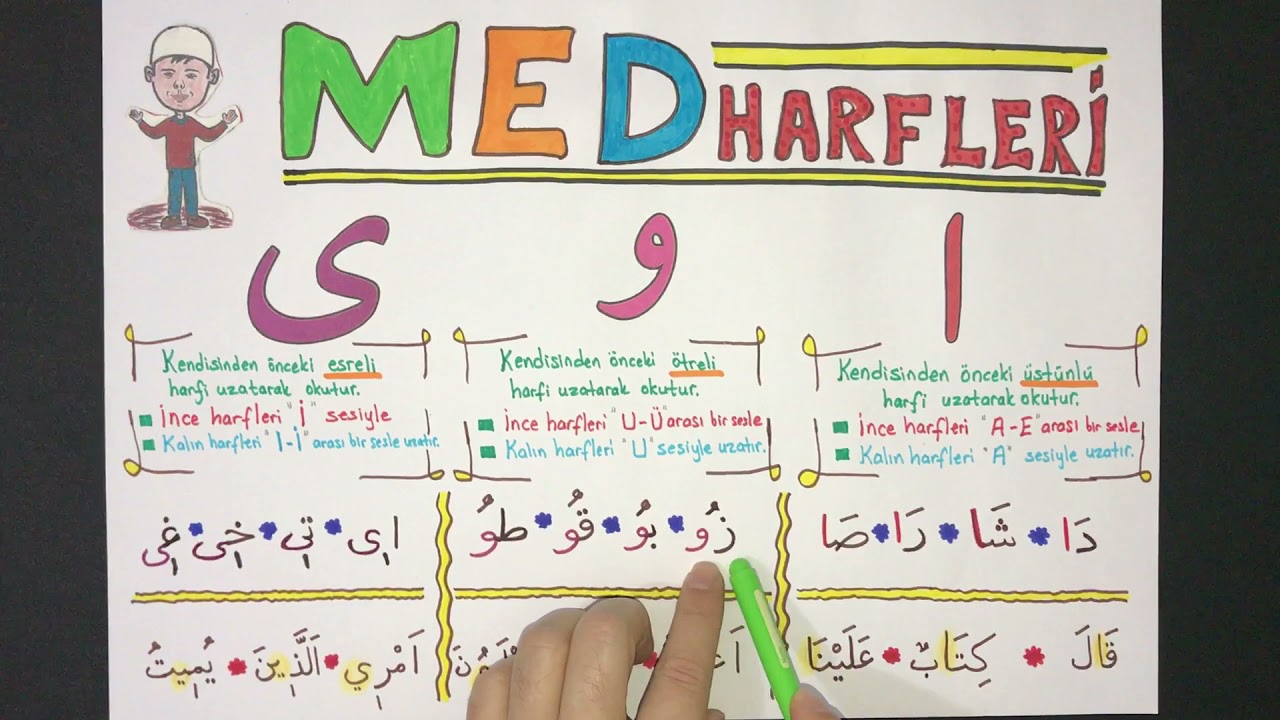 MED HARFLERİ
ا
و
ى
Kendisinden önceki üstünlü
harfi uzatarak okutur.
İnce harfleri "A-E" arası bir sesle
Kalın harfleri "A" sesiyle uzatır.
Kendisinden önceki ötreli
harfi uzatarak okutur.
İnce harfleri "U-Ü" arası bir sesle
Kalın harfleri "U" sesiyle uzatır.
Kendisinden önceki esreli
harfi uzatarak okutur.
İnce harfleri "İ" sesiyle
Kalın harfleri "I-İ" arası bir sesle uzatır.
دَا * شَا * رَا * صَا
زُو * بُو * قُو * طُو
اِى * تِى * خِى * غِى
قَالَ * كِتَابٌ * عَلَيْنَا
اَمْرِي * اَلَّذِينَ * يُمِيتُ